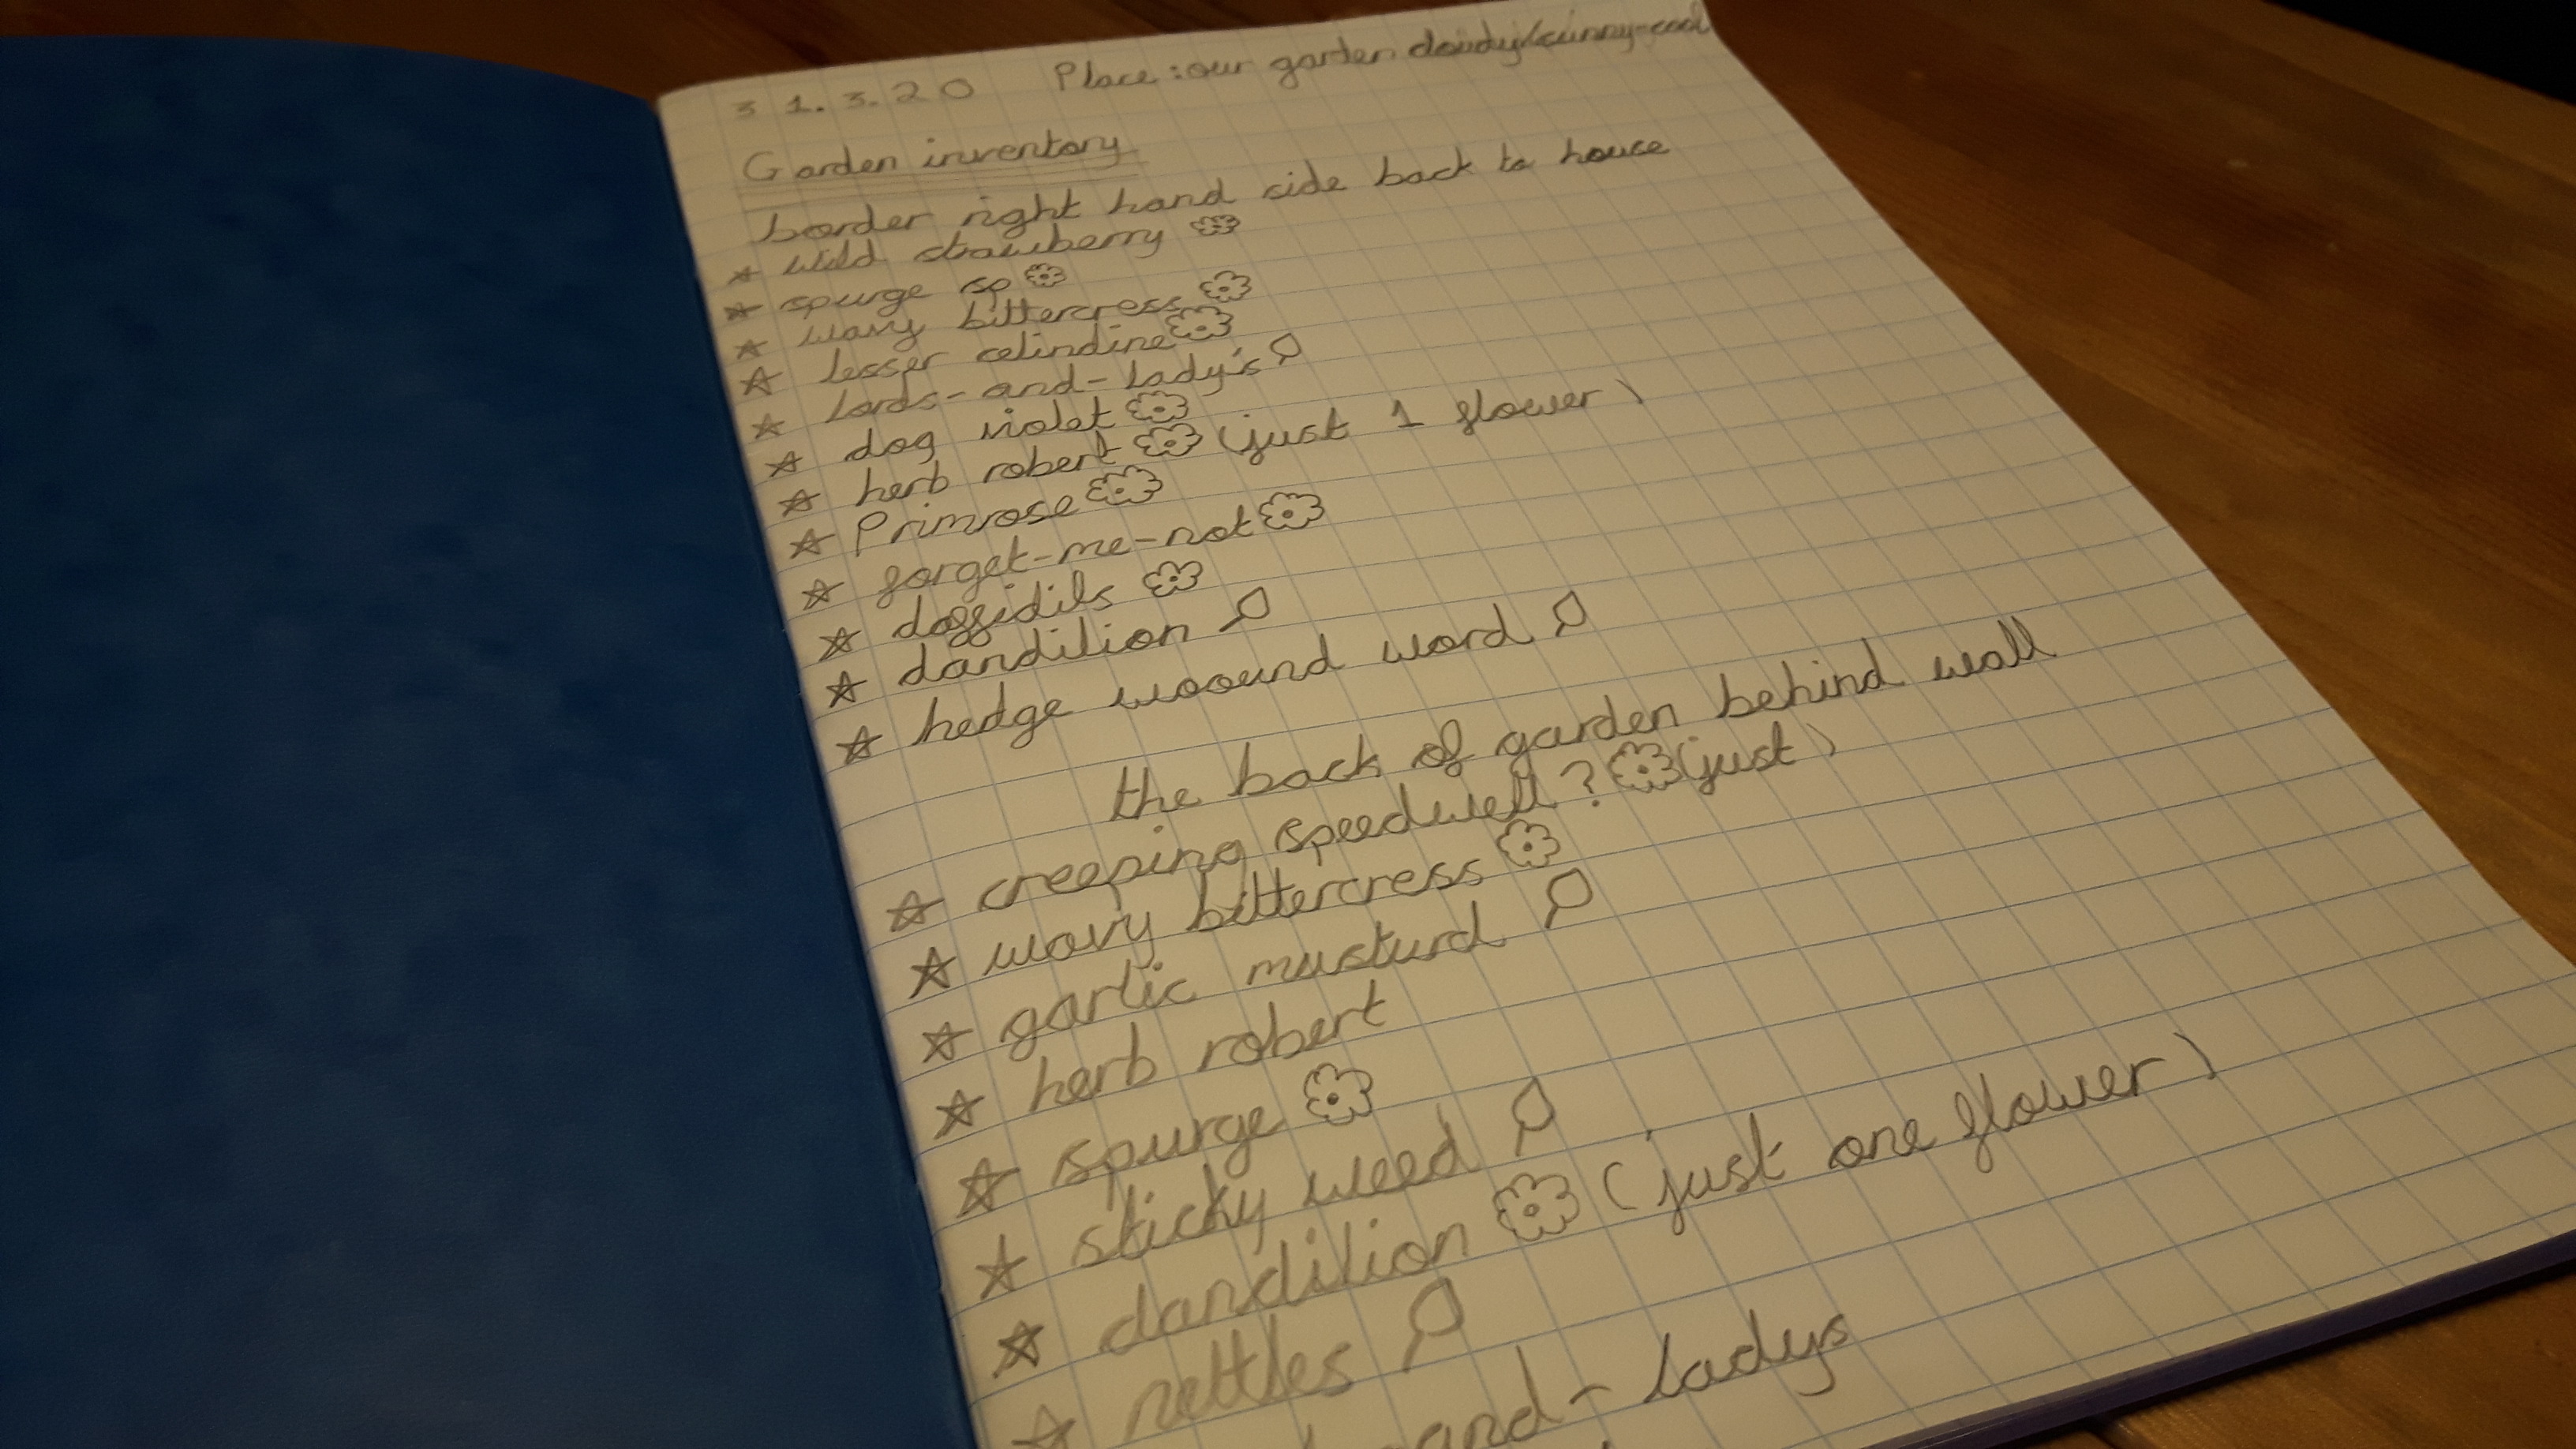 31.3.20 Place: our garden cloudy/sunny-cool
Garden inventory
border right hand side back to house
wild strawberry
spurge sp
wavy bittercress
lesser celindine
lords-and-lady's
dog violet
herb robert (just 1 flower)
Primrose
forget-me-not
daffidils
dandilion
hedge woound word
the back of garden behind wall
creeping speedwell? (just)
wavy bittercress
garlic musturd
herb robert
spurge
sticky weed
dandilion (just one flower)
nettles
and-ladys